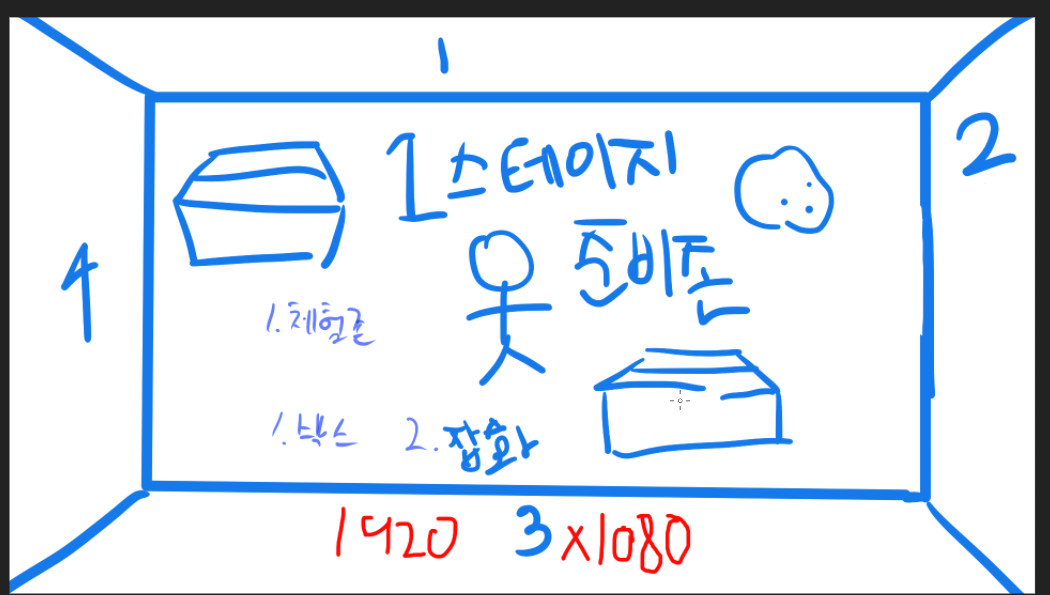 1
2
1 스테이지
준비존
4
1. 체험존
1. 박스 2. 잡화
1920 3 x1080